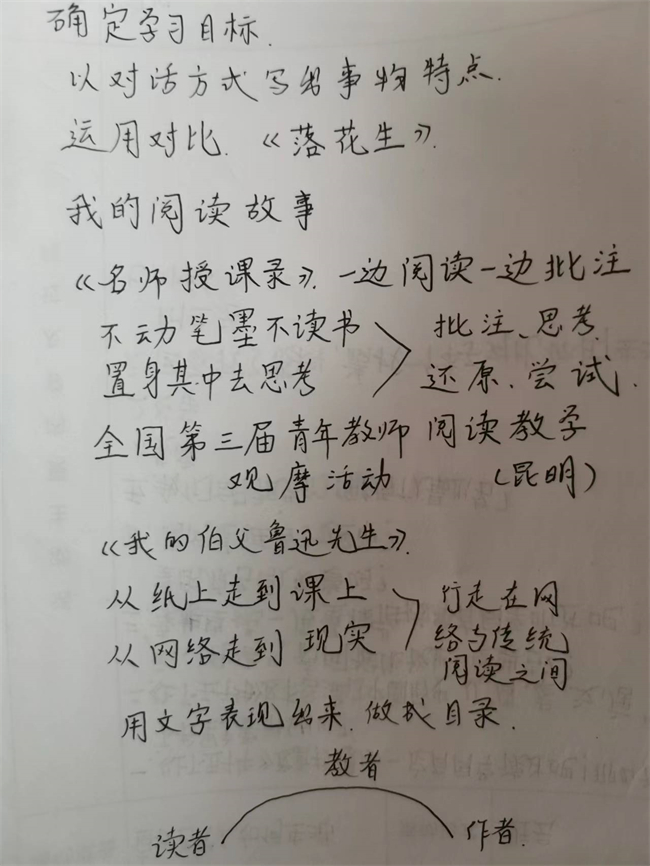 确定学习目标.
以对话方式写出事物特点.
运用对比.《落花生》.
我的阅读故事
《名师授课录》.一边阅读一边批注
不动笔墨不读书
置身其中去思考
批注、思考
还原、尝试.
全国第三届青年教师阅读教学
观摩活动 (昆明)
《我的伯父鲁迅先生》.
从纸上走到课上
从网络走到现实
行走在网
络与传统
阅读之间
用文字表现出来.做成目录.
教者
读者 作者.